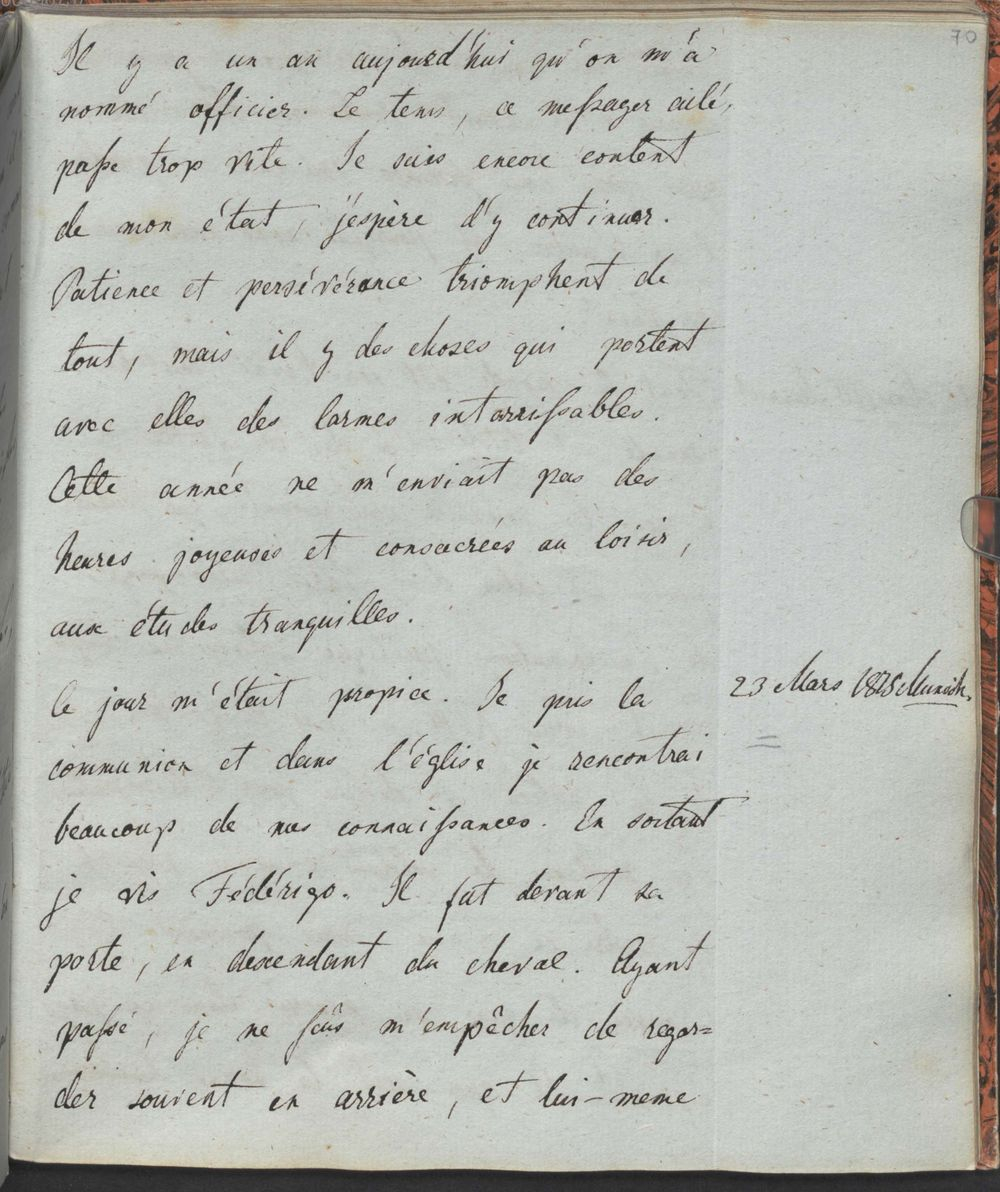 70
Il y a un an aujourd'hui qu'on m'a
nommé officier. Le tems, ce meſsager ailé,
paſse trop vite. Je suis encore content
de mon état, j'espère d'y continuer.
Patience et persévérance triomphent de
tout, mais il y des choses qui portent
avec elles des larmes intarriſsables.
Cette année ne m'enviait pas des
heures joyeuses et consacrées au loisir,
aux études tranquilles.
Ce jour m'était propice. Je pris la
23 Mars 1815 Munich.
communion et dans l'église je rencontrai
beaucoup de mes connaiſsances. En sortant
je vis Fédérigo. Il fut devant sa
porte, en descendant du cheval. Ayant
paſsé, je ne ſûs m'empêcher de regar=
der souvent en arrière, et lui-meme